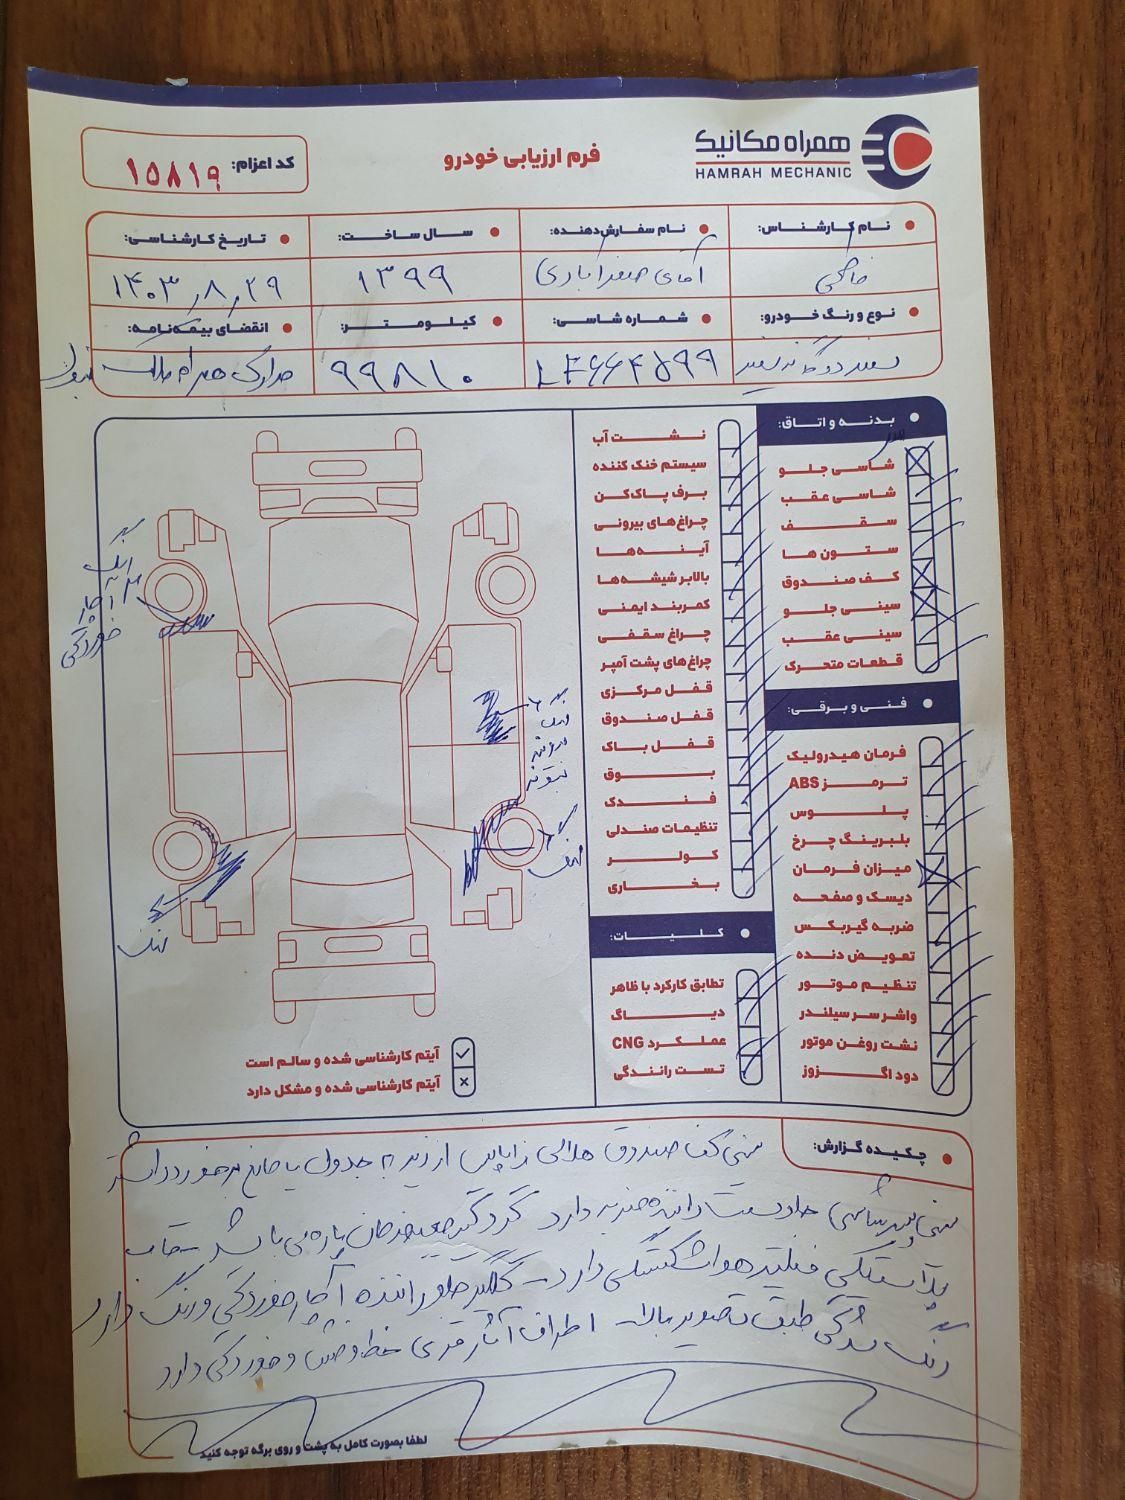 همراه مکانیک
HAMRAH MECHANIC
فرم ارزیابی خودرو
کد اعزام: ۱۵۸۱۹
نام کارشناس:
نام سفارش‌دهنده:
سال ساخت:
تاریخ کارشناسی:
آقای
۱۳۹۹
۱۴۰۳/۸/۲۹
نوع و رنگ خودرو:
شماره شاسی:
کیلومتر:
انقضای بیمه‌نامه:
سفید
۹۹۸۱۰
مدارک همراه مالک نبود
بدنه و اتاق:
شاسی جلو
شاسی عقب
سقف
ستون ها
کف صندوق
سینی جلو
سینی عقب
قطعات متحرک
فنی و برقی:
فرمان هیدرولیک
ترمز ABS
پلوس
بلبرینگ چرخ
میزان فرمان
دیسک و صفحه
ضربه گیربکس
تعویض دنده
تنظیم موتور
واشر سر سیلندر
نشت روغن موتور
دود اگزوز
نشت آب
سیستم خنک کننده
برف پاک‌کن
چراغ‌های بیرونی
آینه‌ها
بالابر شیشه‌ها
کمربند ایمنی
چراغ سقفی
چراغ‌های پشت آمپر
قفل مرکزی
قفل صندوق
قفل باک
بوق
فندک
تنظیمات صندلی
کولر
بخاری
کلیات:
تطابق کارکرد با ظاهر
دیاگ
عملکرد CNG
تست رانندگی
رنگ
آچار
خوردگی
رنگ
رنگ
رنگ
آیتم کارشناسی شده و سالم است
آیتم کارشناسی شده و مشکل دارد
چکیده گزارش:
سینی کف صندوق هلالی زاپاس از زیر به جدول یا مانع برخورد داشته
سینی سرشاسی جلو سمت راننده ضربه دارد گردگیر جعبه فرمان پاره می باشد - قاب
پلاستیکی فیلتر هوا شکستگی دارد - گلگیر جلو راننده آچار خوردگی و رنگ دارد
رنگ شدگی طبق تصویر بالا - اطراف آثار قری خط و خش و خوردگی دارد
لطفا بصورت کامل به پشت و روی برگه توجه کنید